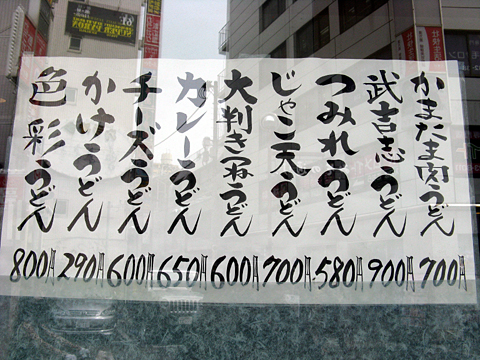 かまたま肉うどん 700円
武吉志うどん 900円
つみれうどん 580円
じゃこ天うどん 700円
大判きつねうどん 600円
カレーうどん 650円
チーズうどん 600円
かけうどん 290円
色彩うどん 800円